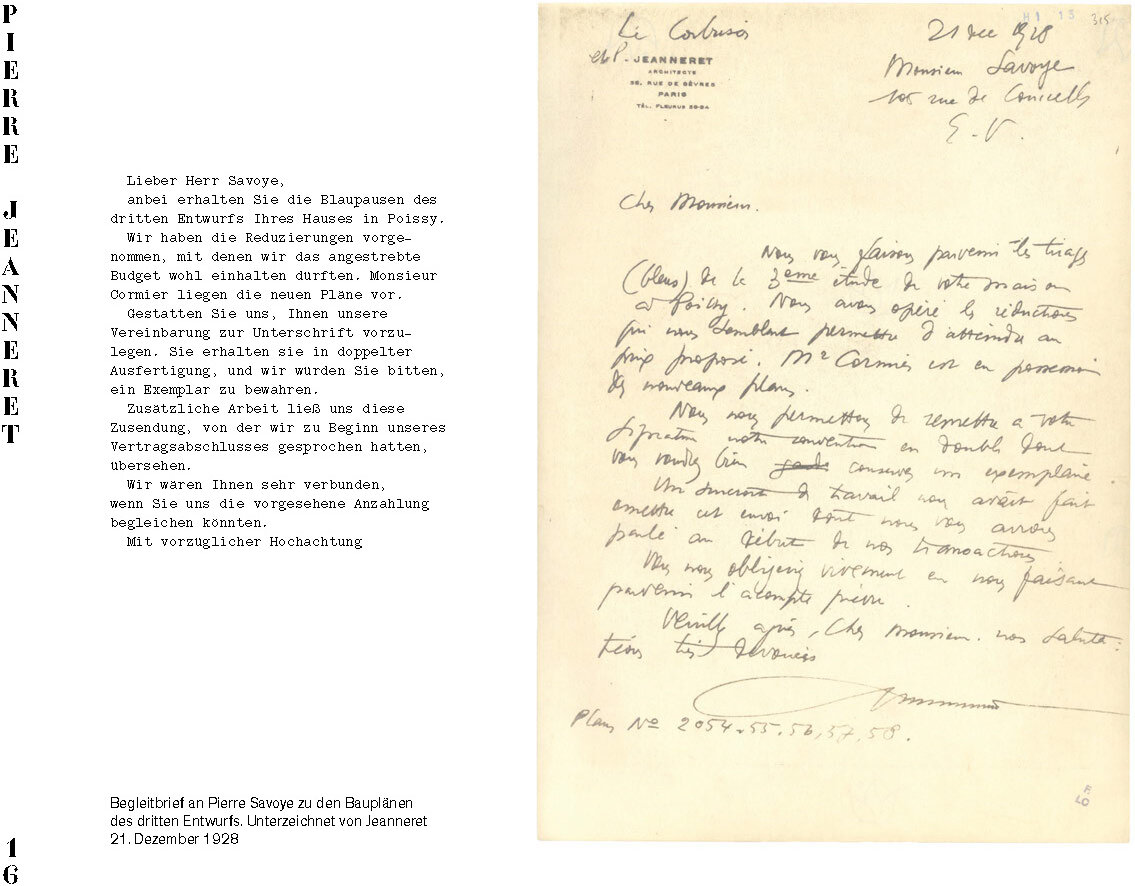 PIERRE JEANNERET
Lieber Herr Savoye,
anbei erhalten Sie die Blaupausen des
dritten Entwurfs Ihres Hauses in Poissy.
Wir haben die Reduzierungen vorge-
nommen, mit denen wir das angestrebte
Budget wohl einhalten dürften. Monsieur
Cormier liegen die neuen Pläne vor.
Gestatten Sie uns, Ihnen unsere
Vereinbarung zur Unterschrift vorzu-
legen. Sie erhalten sie in doppelter
Ausfertigung, und wir würden Sie bitten,
ein Exemplar zu bewahren.
Zusätzliche Arbeit ließ uns diese
Zusendung, von der wir zu Beginn unseres
Vertragsabschlusses gesprochen hatten,
übersehen.
Wir wären Ihnen sehr verbunden,
wenn Sie uns die vorgesehene Anzahlung
begleichen könnten.
Mit vorzüglicher Hochachtung
Begleitbrief an Pierre Savoye zu den Bauplänen
des dritten Entwurfs. Unterzeichnet von Jeanneret
21. Dezember 1928
16
H1 15 315
Le Corbusier
et P. JEANNERET
ARCHITECTE
35, RUE DE SÈVRES
PARIS
TÉL. FLEURUS
21 dec 1928
Monsieur Savoye
105 rue de Courcelles
E. V.
Cher Monsieur.
Nous vous faisons parvenir les tirages
(bleus) de la 3eme étude de votre maison
à Poissy. Nous avons opéré les réductions
qui nous semblent permettre d'atteindre au
prix proposé. Mr Cormier est en possession
des nouveaux plans.
Nous nous permettons de remettre à votre
signature notre convention en double dont
vous voudrez bien conserver un exemplaire.
Un surcroit de travail nous avait fait
omettre cet envoi dont nous vous avions
parlé au début de nos transactions
Vous nous obligeriez vivement en nous faisant
parvenir l'acompte prévu.
Veuillez agréer, Cher Monsieur. nos saluta-
tions très dévouées
Plans No 2054.55.56,57,58.